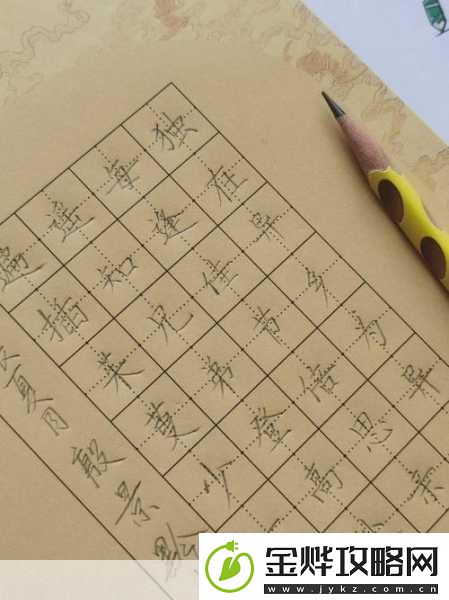 独在异乡为异
每逢佳节倍思亲
遥知兄弟登高
遍插茱萸少
夏月殷景
金烨攻略网
www.jykz.com.cn